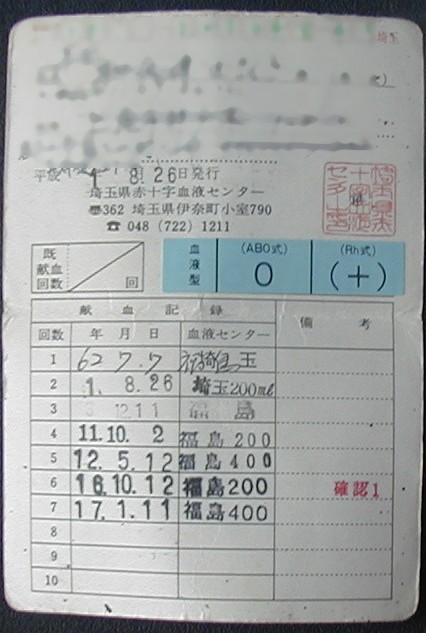 埼玉
平成 1. 8. 26日発行
埼玉県赤十字血液センター
〒362 埼玉県伊奈町小室790
☎ 048 (722) 1211
既献血回数 回
血液型 (ABO式) O (Rh式) (+)
献血記録 備考
回数 年 月 日 血液センター
1 62 7 7 埼玉
2 1. 8. 26 埼玉200ml
3 12 11 福島
4 11.10. 2 福島200
5 12. 5. 12 福島400
6 16.10. 12 福島200 確認1
7 17. 1. 11 福島400
8
9
10